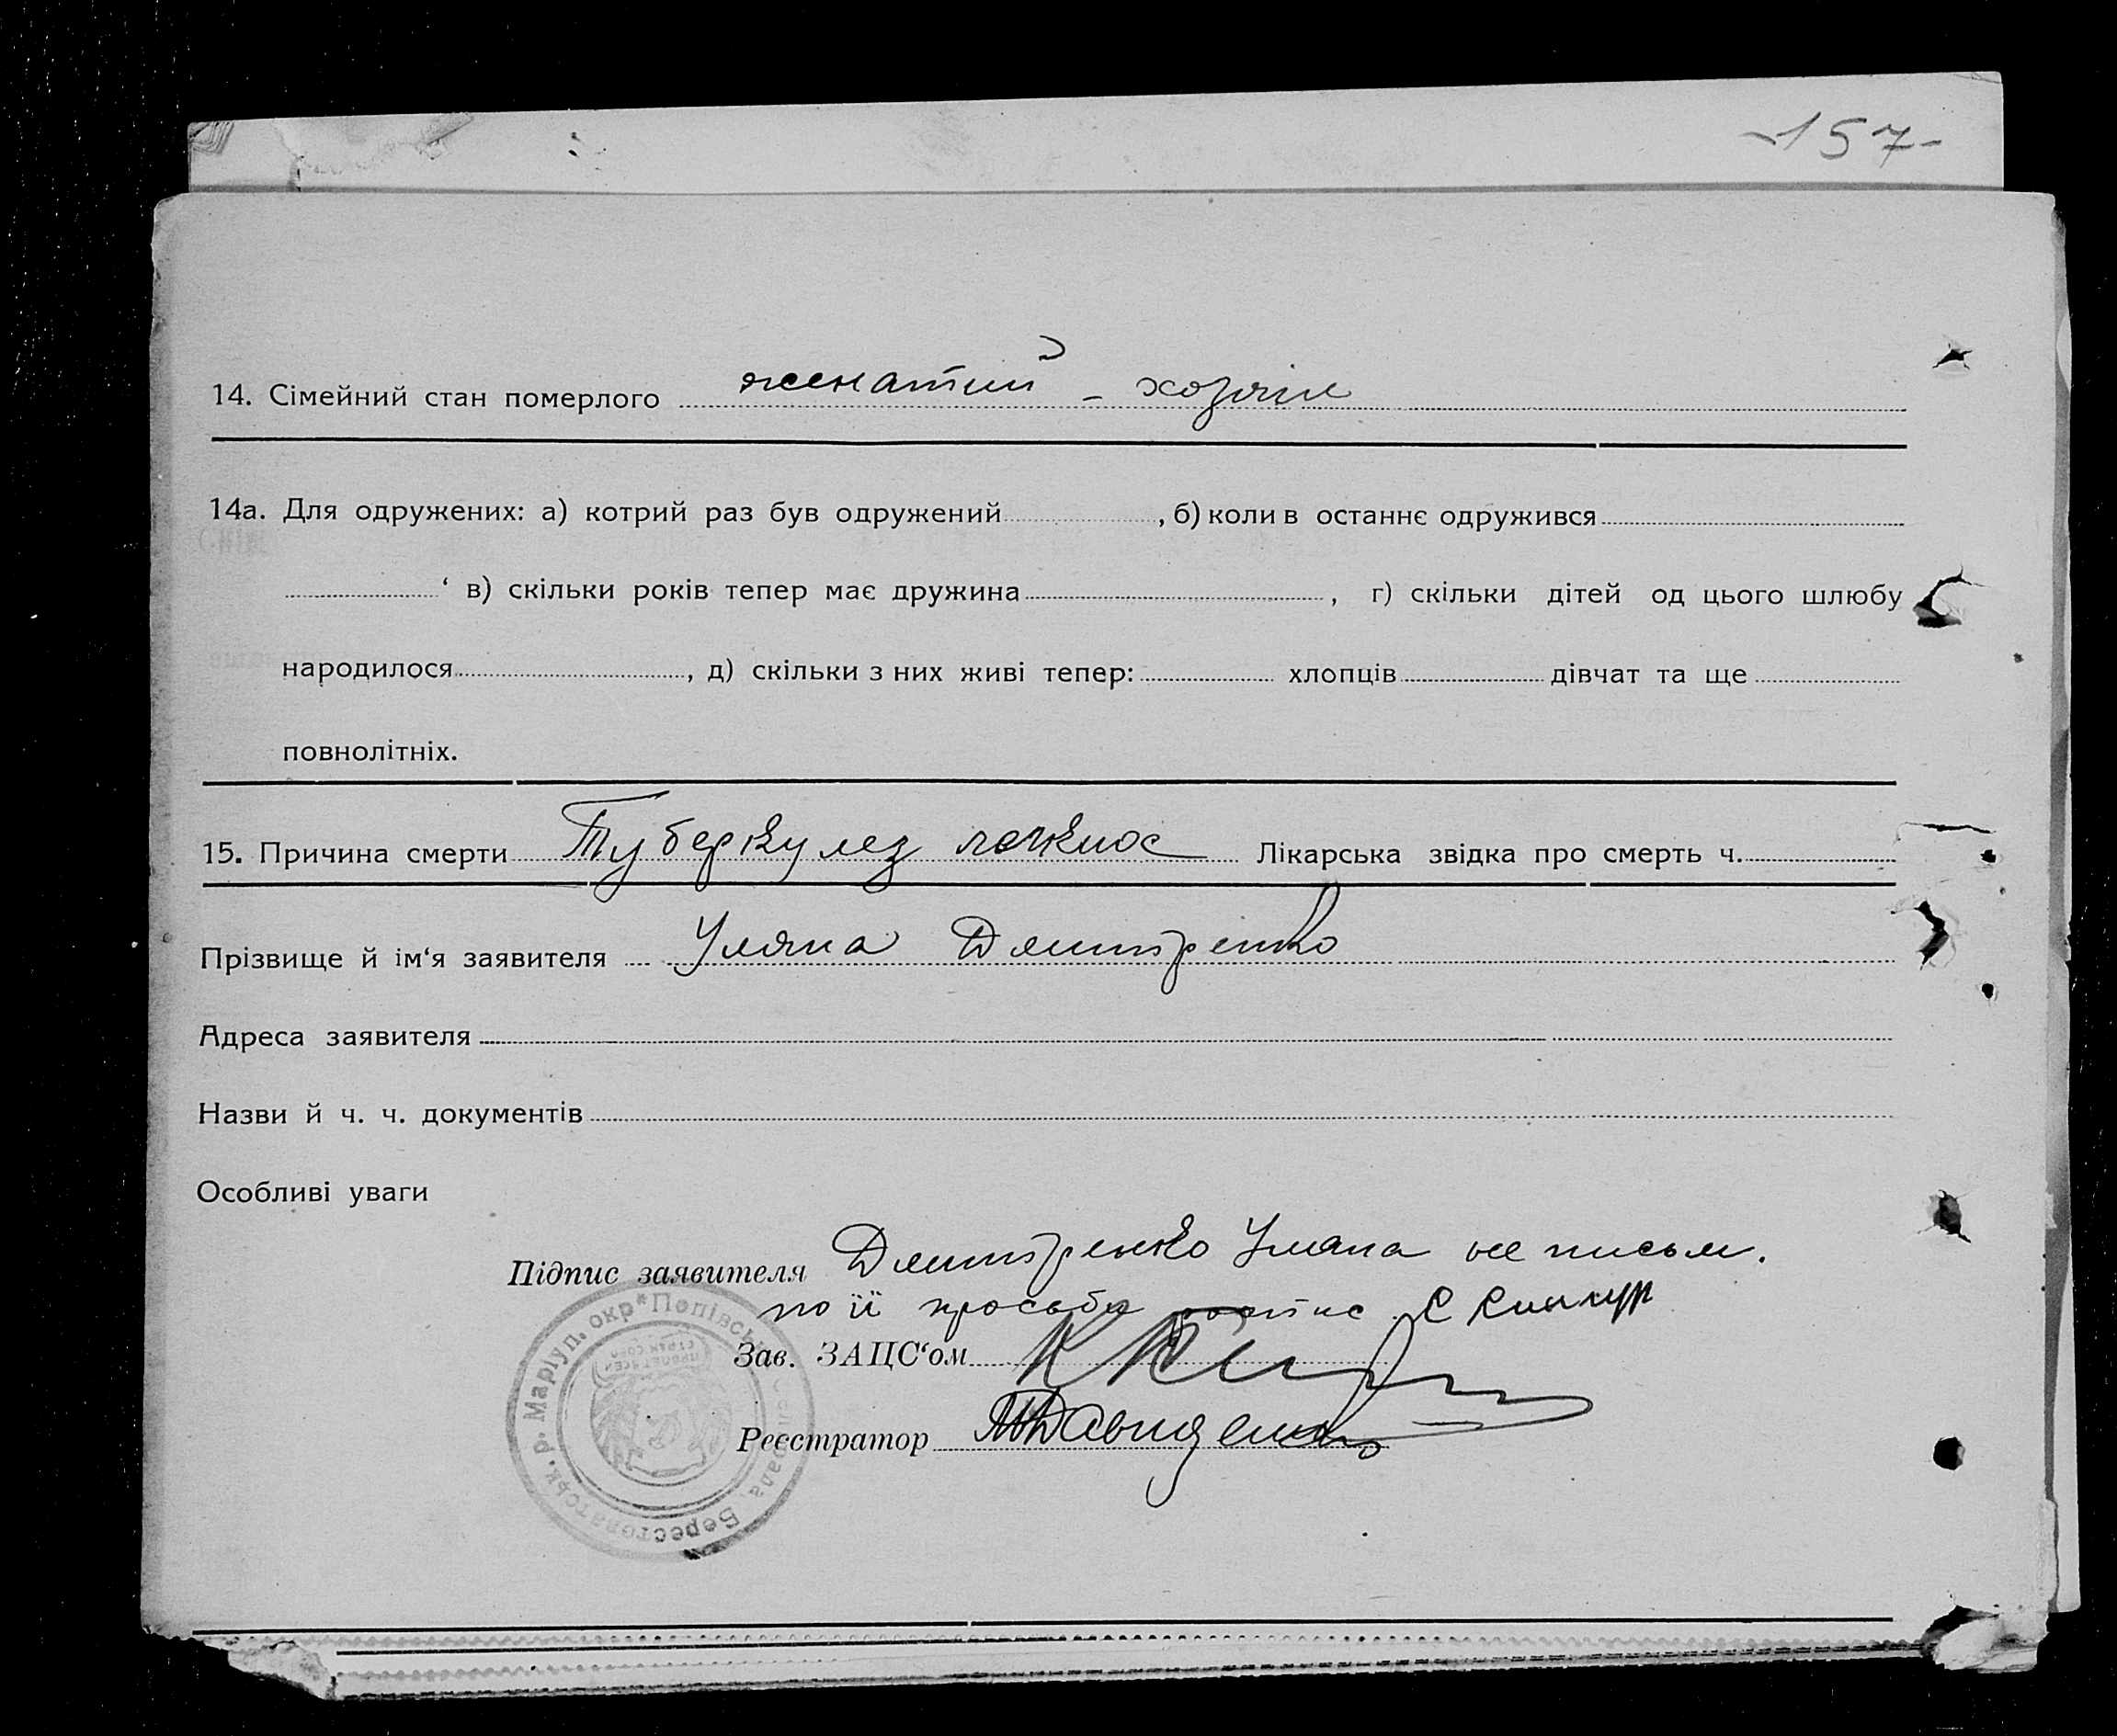 -157-
14. Сімейний стан померлого женатий - хозяін
14а. Для одружених: а) котрий раз був одружений , б) коли в останнє одружився
‘ в) скільки років тепер має дружина , г) скільки дітей од цього шлюбу
народилося , д) скільки з них живі тепер: хлопців дівчат та ще
повнолітніх.
15. Причина смерти Туберкулез легких Лікарська звідка про смерть ч.
Прізвище й ім‘я заявителя Уляна Дмитренко
Адреса заявителя
Назви й ч. ч. документів
Особливі уваги
Підпис заявителя Дмитренко Уляна не письм.
по її просьбе
Зав. ЗАЦС‘ом
Реєстратор Давиденко
Маріуп. окр * Попівськ сельрада Берестоватськ. р.